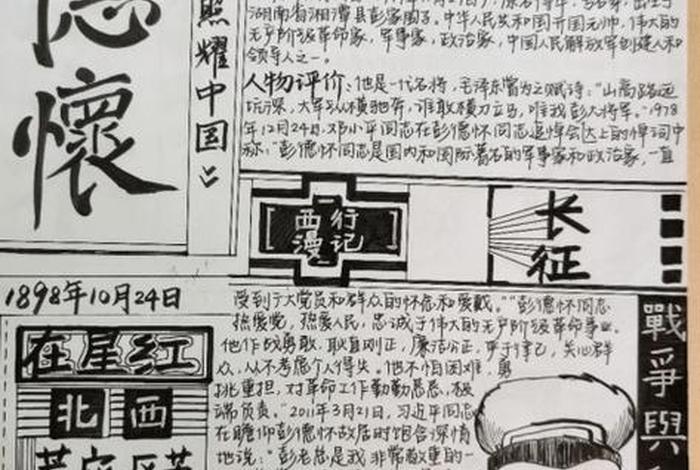 德
懷
照耀中国》
湖南省湘潭县彭家围子。中华人民共和国开国元帅，伟大的
无产阶级革命家，军事家，政治家，中国人民解放军创建人和
领导人之一。
人物评价：他是一代名将，毛泽东曾为之赋诗："山高路远
坑深，大军纵横驰奔，谁敢横刀立马，唯我彭大将军。"1978
年12月24日，邓小平同志在彭德怀同志追悼会上的悼词中
称："彭德怀同志是国内和国际著名的军事家和政治家，一直
西行
漫记
长征
1898年10月24日
受到广大党员和群众的怀念和爱戴。""彭德怀同志
热爱党，热爱人民，忠诚于伟大的无产阶级革命事业。
他作战勇敢，耿直刚正，廉洁公正，严于律己，关心群
众，从不考虑个人得失。他不怕困难，勇
挑重担，对革命工作勤勤恳恳，极
端负责。"2011年3月21日，习近平同志
在瞻仰彭德怀故居时饱含深情
地说："彭老总是我非常敬重的一
红星在
西北
戰爭與